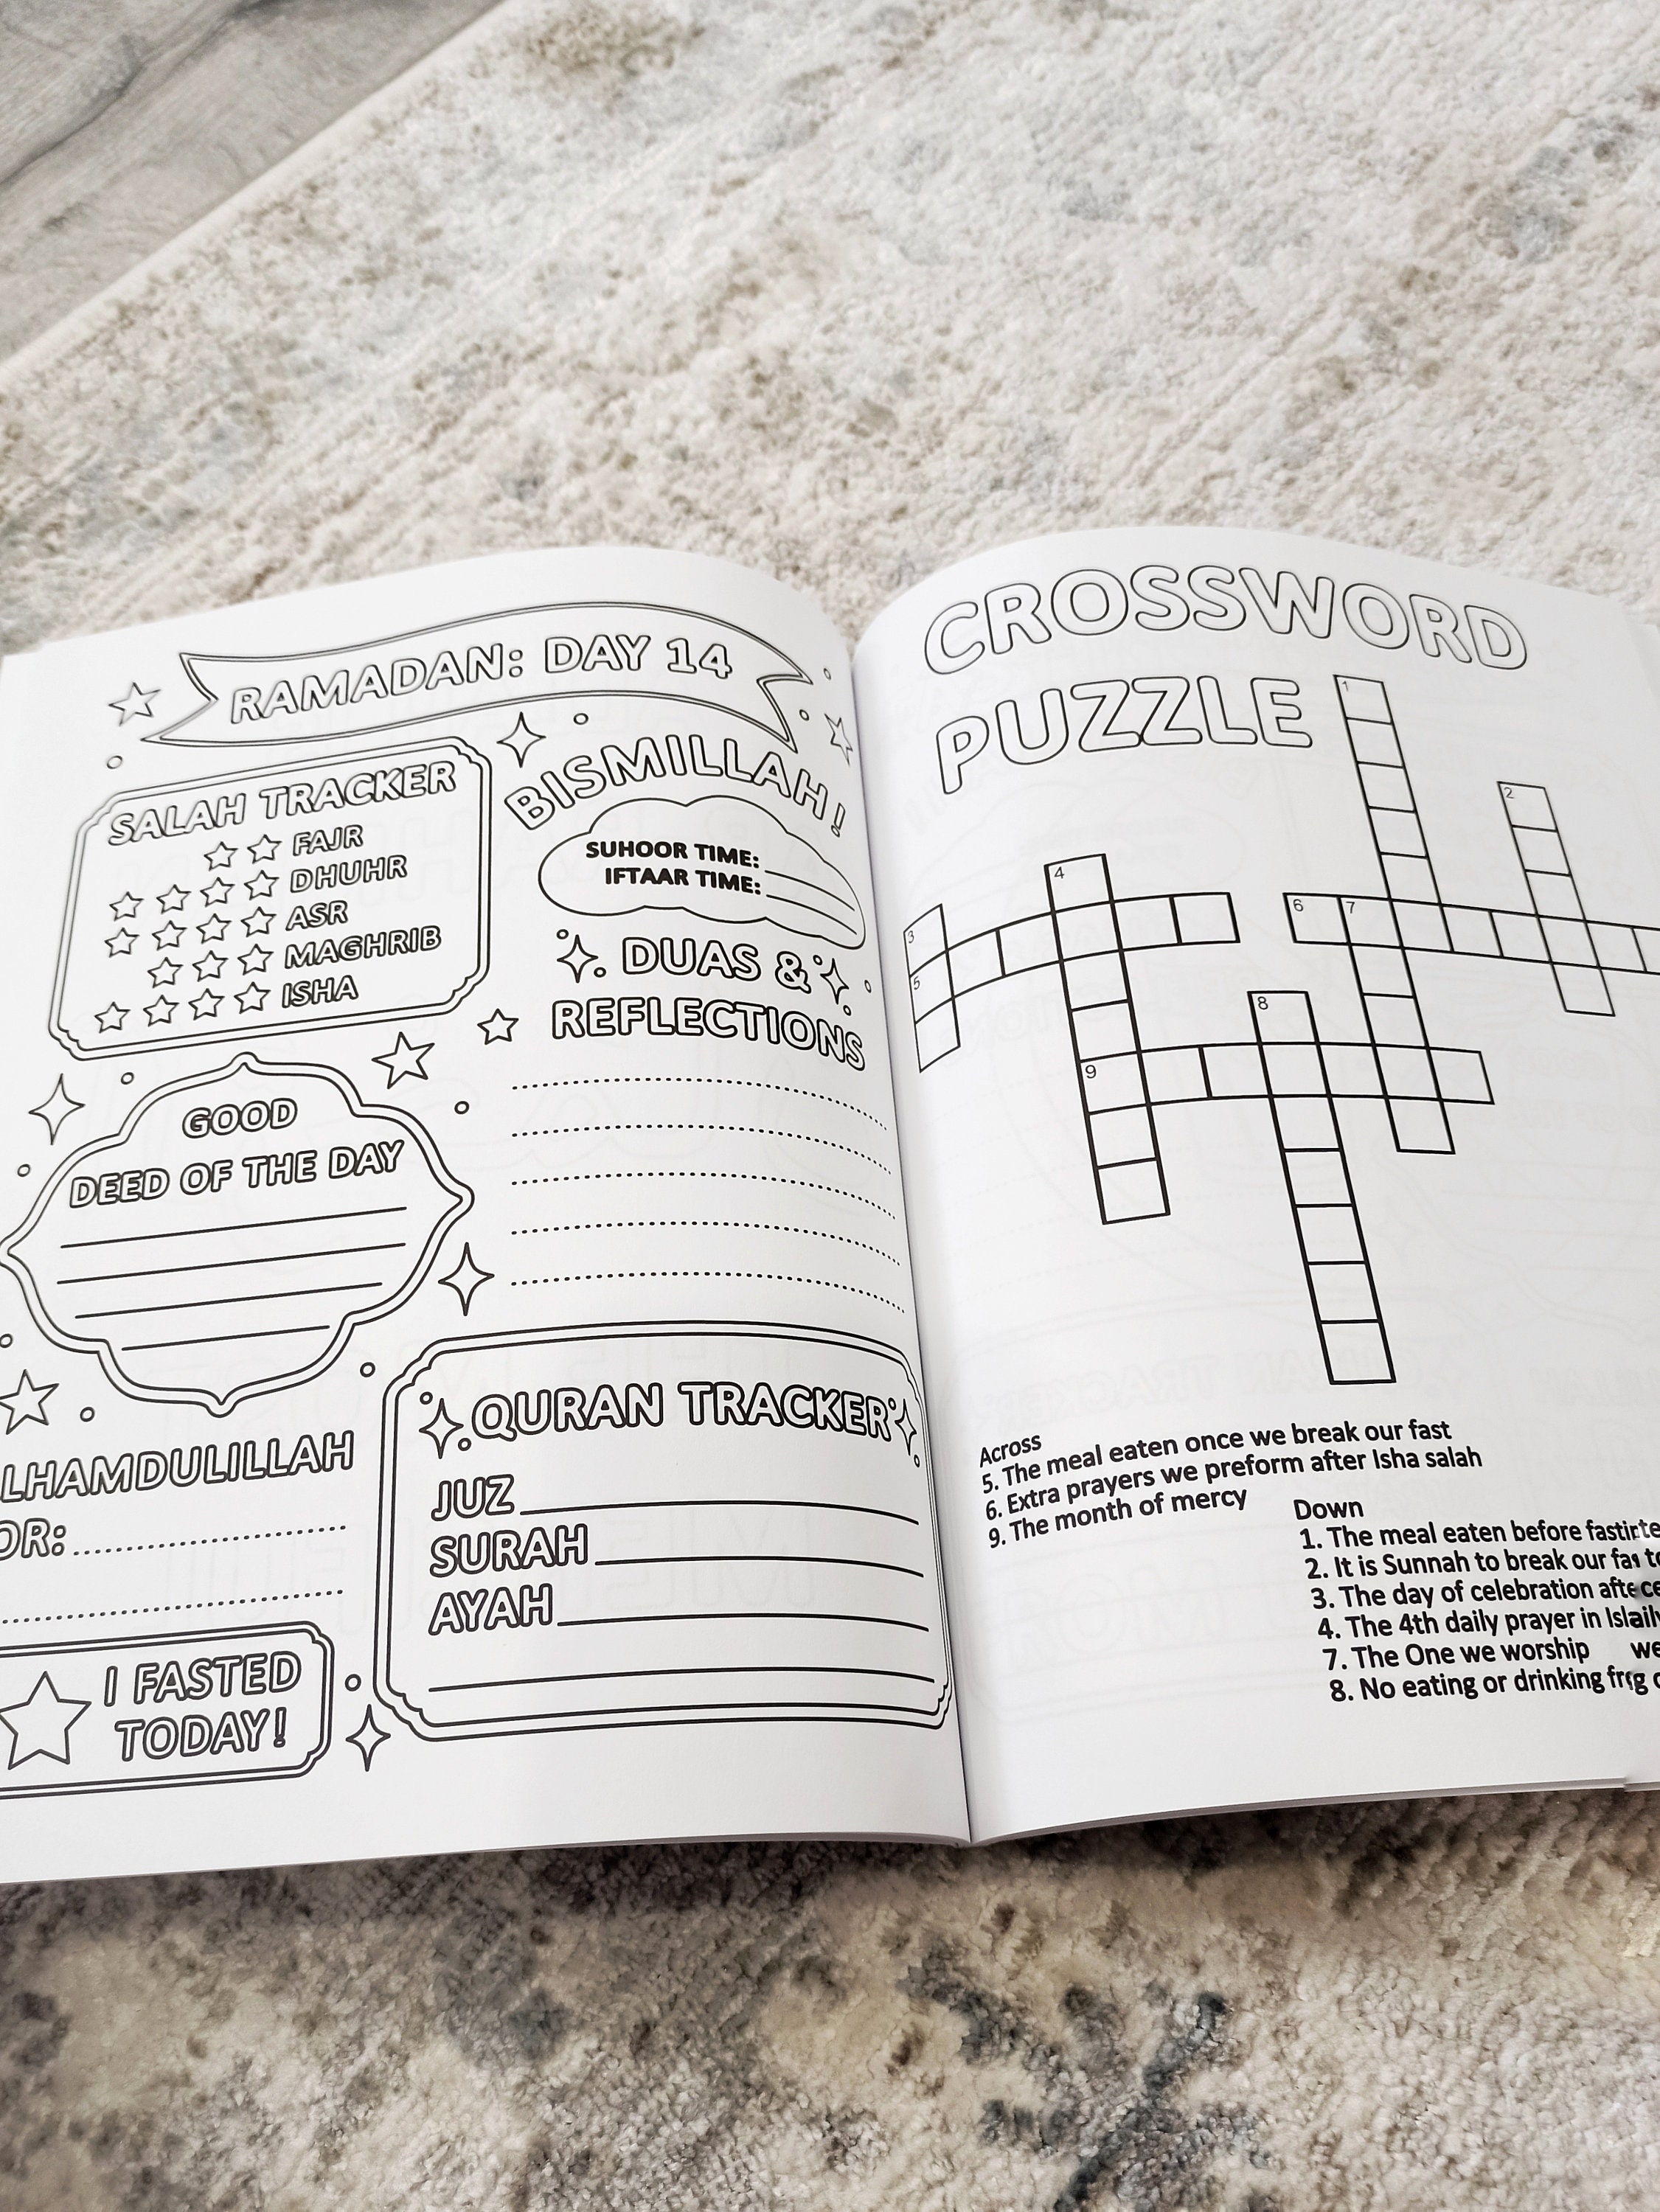 RAMADAN: DAY 14
SALAH TRACKER
FAJR
DHUHR
ASR
MAGHRIB
ISHA
BISMILLAH!
SUHOOR TIME:
IFTAAR TIME:
DUAS &
REFLECTIONS
GOOD
DEED OF THE DAY
LHAMDULILLAH
OR:
I FASTED
TODAY!
QURAN TRACKER
JUZ
SURAH
AYAH
CROSSWORD
PUZZLE
1
2
4
3
6 7
5
8
9
Across
5. The meal eaten once we break our fast
6. Extra prayers we preform after Isha salah
9. The month of mercy
Down
1. The meal eaten before
2. It is Sunnah to break our
3. The day of celebration
4. The 4th daily prayer in
7. The One we worship
8. No eating or drinking